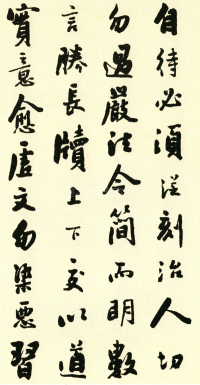 自待必須從刻治人切
勿過嚴法令簡而明數
言勝長牘上下交以道
實意愈虛文勿染惡習